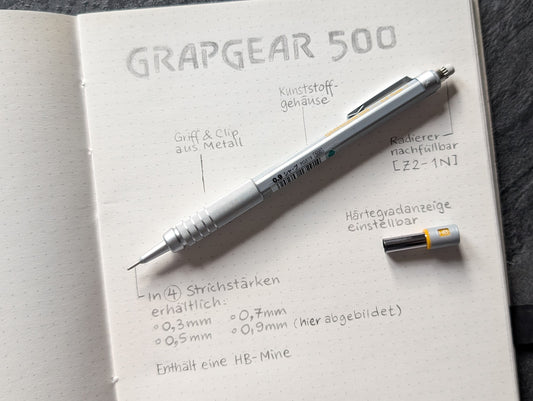 GRAPGEAR 500
Kunststoff-
gehäuse
Griff & Clip
aus Metall
Radierer
nachfüllbar
[Z2-1N]
0.9
Härtegradanzeige
einstellbar
HB
In ④ Strichstärken
erhältlich:
◦ 0,3mm ◦ 0,7mm
◦ 0,5mm ◦ 0,9mm (hier abgebildet)
Enthält eine HB-Mine